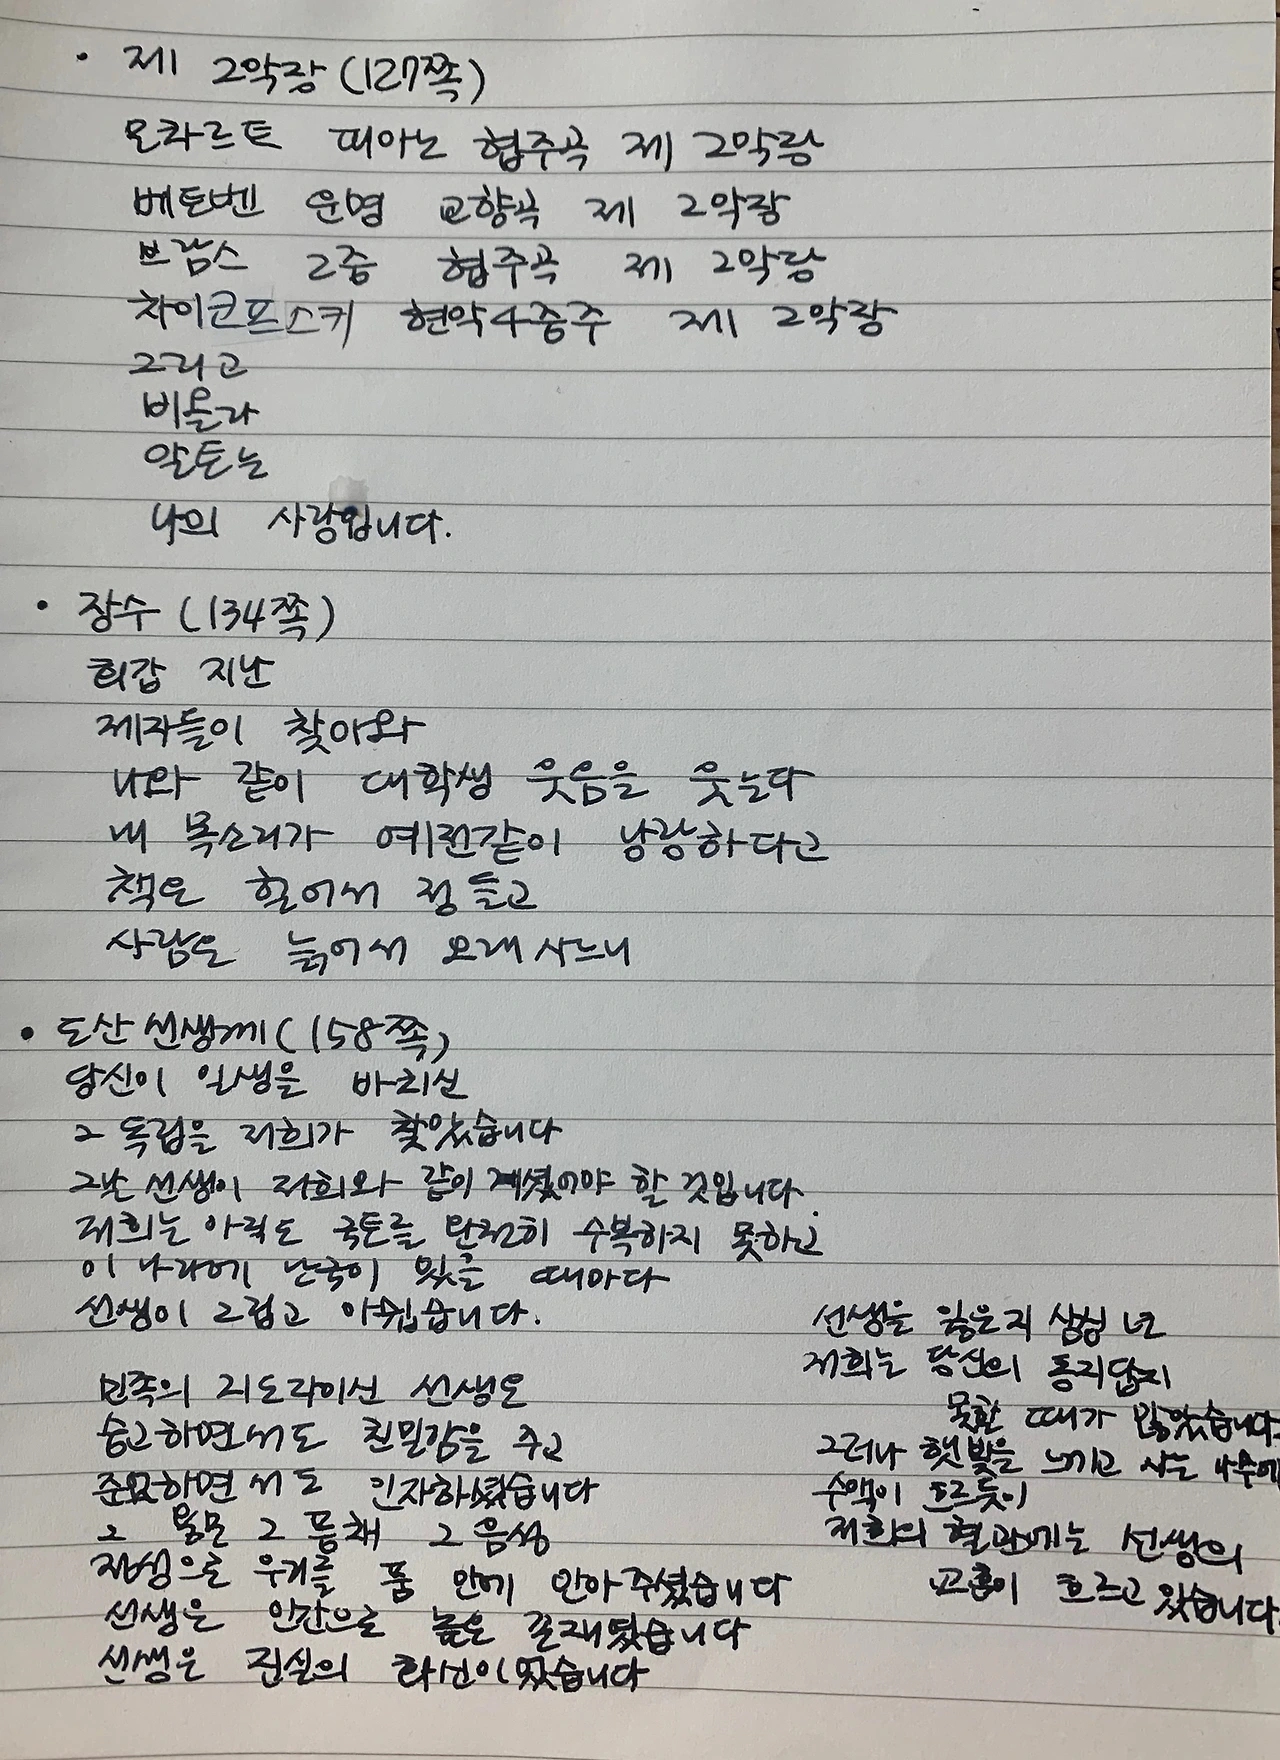 • 제 2악장 (127쪽)
모차르트 피아노 협주곡 제 2악장
베토벤 운명 교향곡 제 2악장
브람스 2중 협주곡 제 2악장
차이코프스키 현악4중주 제 2악장
그리고
비올라
알토는
나의 사랑입니다.
• 장수 (134쪽)
회갑 지난
제자들이 찾아와
나와 같이 대학생 웃음을 웃는다
내 목소리가 예전같이 낭랑하다고
책은 헐어서 정 들고
사람은 늙어서 오래 사느니
• 도산 선생께 (158쪽)
당신이 일생을 바치신
그 독립을 저희가 찾았습니다
그날 선생이 저희와 같이 계셨어야 할 것입니다.
저희는 아직도 국토를 완전히 수복하지 못하고
이 나라에 난국이 있을 때마다
선생이 그립고 아쉽습니다.
민족의 지도자이신 선생은
숭고하면서도 친밀감을 주고
준엄하면서도 인자하셨습니다
그 용모 그 풍채 그 음성
지성으로 우리를 품 안에 안아 주셨습니다
선생은 인간으로 높은 존재였습니다
선생은 진실의 화신이었습니다
선생을 잃은지 삼십 년
저희는 당신의 동지답지
못한 때가 많았습니다
그러나 햇빛을 느끼고 사는 나무에
수액이 흐르듯이
저희의 혈관에는 선생의
교훈이 흐르고 있습니다.